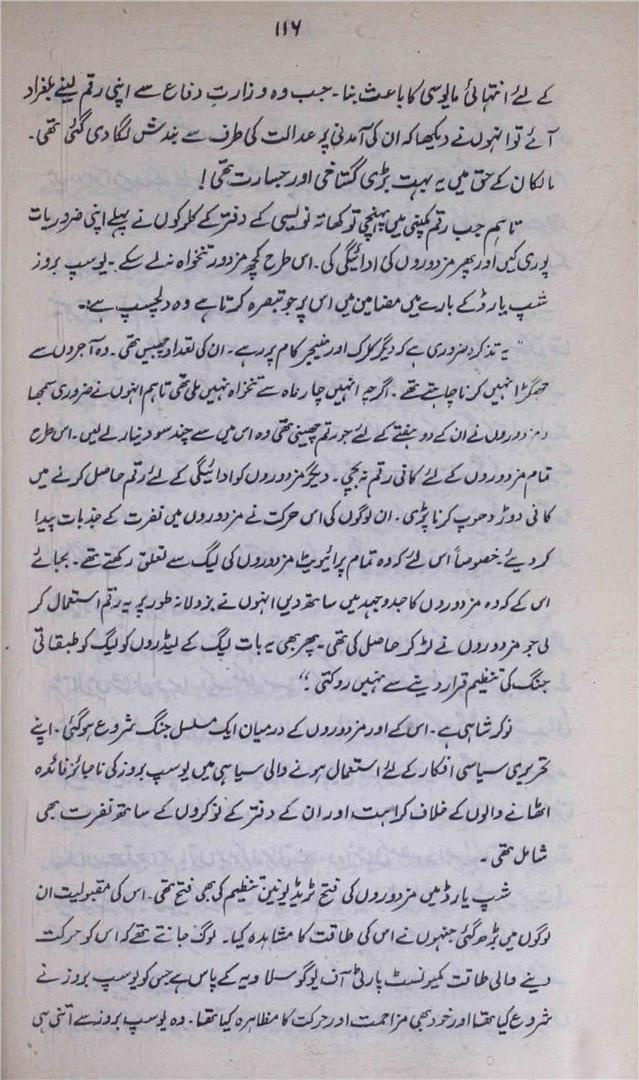 ۱۱۶
کے لئے انتہائی مایوسی کا باعث بنا۔ جب وہ وزارتِ دفاع سے اپنی رقم لینے بلغراد
آئے تو انہوں نے دیکھا کہ ان کی آمدنی پر عدالت کی طرف سے بندش لگا دی گئی تھی۔
مالکان کے حق میں یہ بہت بڑی گستاخی اور جسارت تھی!
تاہم جب رقم کمپنی میں پہنچی تو کھاتہ نویسی کے دفتر کے کلرکوں نے پہلے اپنی ضروریات
پوری کیں اور پھر مزدوروں کی ادائیگی کی۔ اس طرح کچھ مزدور تنخواہ نہ لے سکے۔ یوسپ بروز
شپ یارڈ کے بارے میں مضامین میں اس پر جو تبصرہ کرتا ہے وہ دلچسپ ہے:۔
"یہ تذکرہ ضروری ہے کہ دیگر کلرک اور منیجر کام پر رہے۔ ان کی تعداد چھبیس تھی۔ وہ آجروں سے
جھگڑا نہیں کرنا چاہتے تھے۔ اگرچہ انہیں چار ماہ سے تنخواہ نہیں ملی تھی تاہم انہوں نے ضروری سمجھا
مزدوروں نے ان کے دو ہفتے کے لئے جو رقم چھینی تھی وہ اس میں سے چند سو دینار لے لیں۔ اس طرح
تمام مزدوروں کے لئے کافی رقم نہ بچی۔ دیگر مزدوروں کو ادائیگی کے لئے رقم حاصل کرنے میں
کافی دوڑ دھوپ کرنا پڑی۔ ان لوگوں کی اس حرکت نے مزدوروں میں نفرت کے جذبات پیدا
کر دیئے۔ خصوصاً اس لئے کہ وہ تمام پرائیویٹ مزدوروں کی لیگ سے تعلق رکھتے تھے۔ بجائے
اس کے کہ وہ مزدوروں کا جدوجہد میں ساتھ دیں انہوں نے بزدلانہ طور پر یہ رقم استعمال کر
لی جو مزدوروں نے لڑ کر حاصل کی تھی۔ پھر بھی یہ بات لیگ کے لیڈروں کو لیگ کو طبقاتی
جنگ کی تنظیم قرار دینے سے نہیں روکتی۔"
نوکر شاہی ہے۔ اس کے اور مزدوروں کے درمیان ایک مسلسل جنگ شروع ہو گئی۔ اپنے
تحریری سیاسی افکار کے لئے استعمال ہونے والی سیاہی میں یوسپ بروز کی ناجائز فائدہ
اٹھانے والوں کے خلاف کراہت اور ان کے دفتر کے نوکروں کے ساتھ نفرت بھی
شامل تھی۔
شپ یارڈ میں مزدوروں کی فتح ٹریڈ یونین تنظیم کی بھی فتح تھی۔ اس کی مقبولیت ان
لوگوں میں بڑھ گئی جنہوں نے اس کی طاقت کا مشاہدہ کیا۔ لوگ جانتے تھے کہ اس کو حرکت
دینے والی طاقت کمیونسٹ پارٹی آف یوگوسلاویہ کے پاس ہے جس کو یوسپ بروز نے
شروع کیا تھا اور خود بھی مزاحمت اور حرکت کا مظاہرہ کیا تھا۔ وہ یوسپ بروز سے اتنی ہی